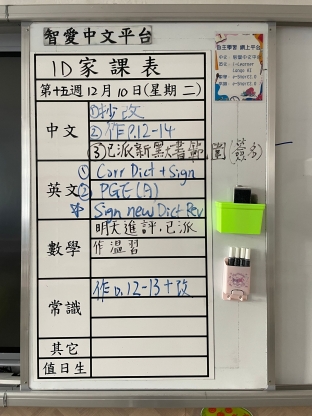 智愛中文平台
1D家課表
第十五週12月10日(星期二)
中文
①抄改
②作P.12-14
③已派新默書範圍(簽名)
英文
① Corr Dict + Sign
② PGE(A)
☆ Sign new Dict Rev
數學
明天進評.已派
作溫習
常識
作p.12-13+改
其它
值日生
自主學習 網上平台